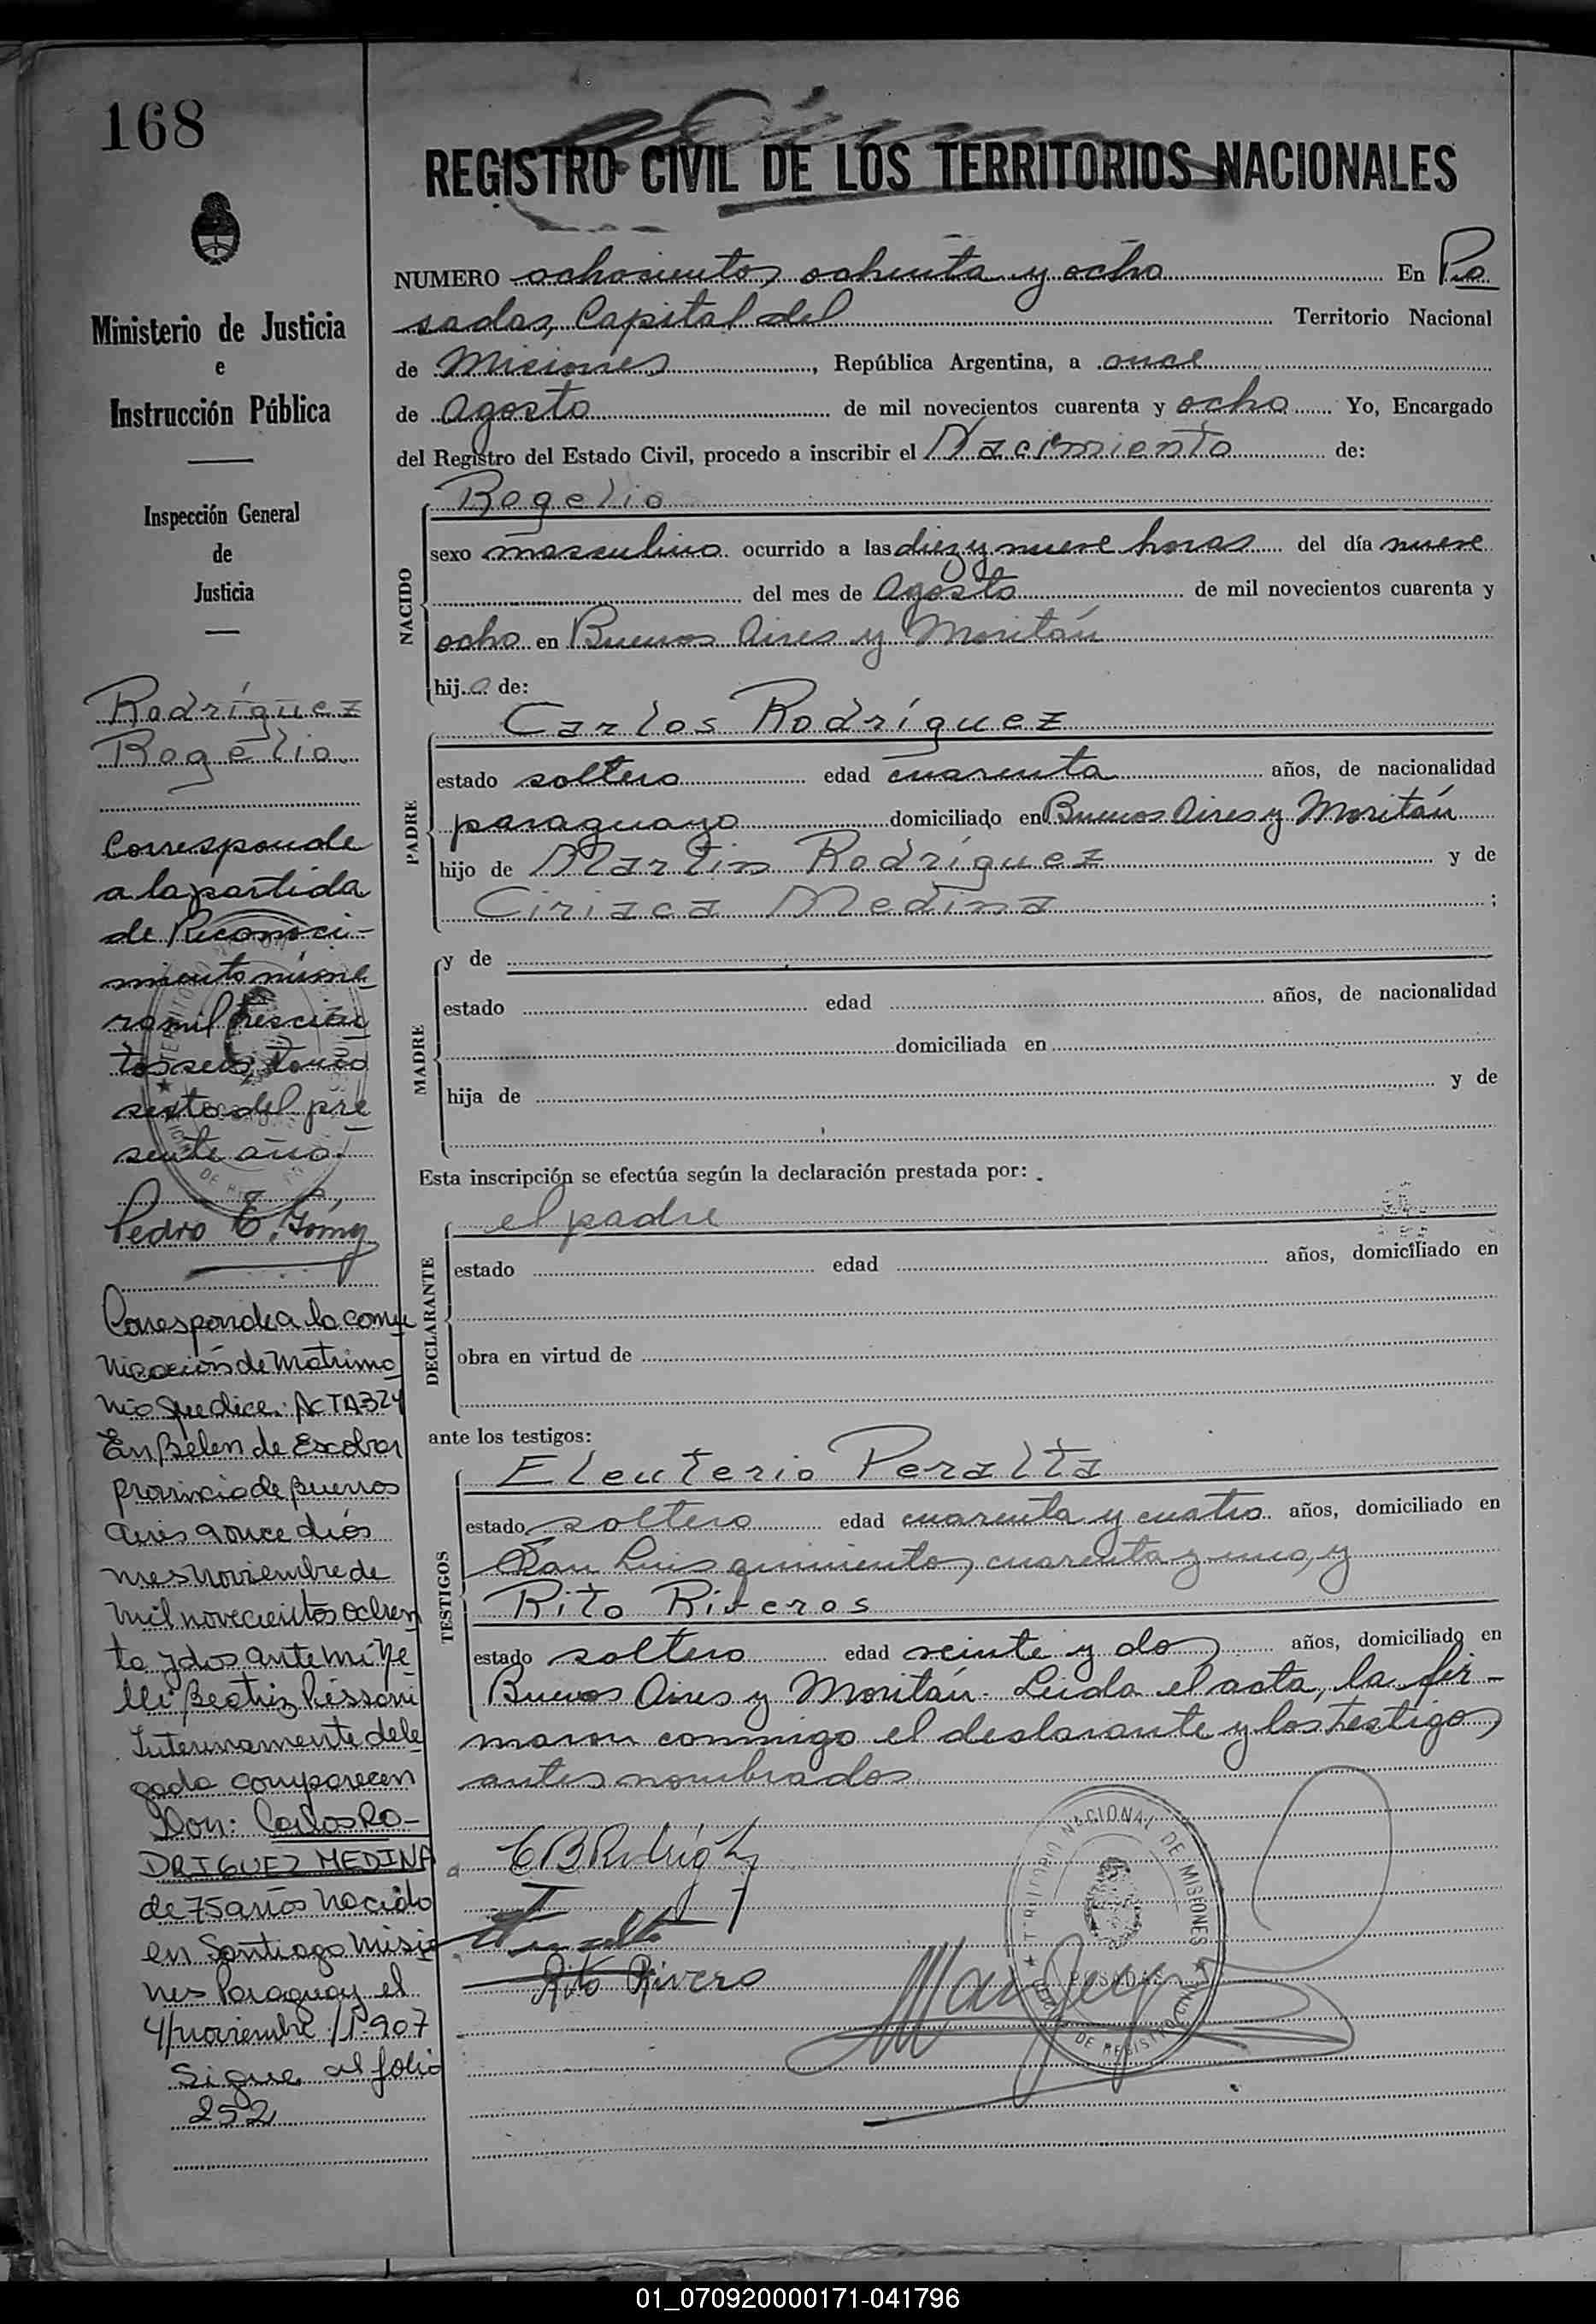 168
REGISTRO CIVIL DE LOS TERRITORIOS NACIONALES
Ministerio de Justicia
e
Instrucción Pública
Inspección General
de
Justicia
NUMERO ochosientos ochenta y ocho En Po
sadas, Capital del Territorio Nacional
de Misiones, República Argentina, a once
de Agosto de mil novecientos cuarenta y ocho Yo, Encargado
del Registro del Estado Civil, procedo a inscribir el Nacimiento de:
NACIDO
Rogelio
sexo masculino ocurrido a las diez y nueve horas del día nueve
del mes de Agosto de mil novecientos cuarenta y
ocho en Buenos Aires y Moritán
hijo de:
PADRE
Carlos Rodríguez
estado soltero edad cuarenta años, de nacionalidad
paraguayo domiciliado en Buenos Aires y Moritán
hijo de Martin Rodríguez y de
Ciriaca Medina ;
MADRE
y de
estado edad años, de nacionalidad
domiciliada en
hija de y de
Esta inscripción se efectúa según la declaración prestada por:
DECLARANTE
el padre
estado edad años, domiciliado en
obra en virtud de
ante los testigos:
TESTIGOS
Eleuterio Peralta
estado soltero edad cuarenta y cuatro años, domiciliado en
San Luis quinientos cuarenta y uno, y
Rito Riveros
estado soltero edad veinte y dos años, domiciliado en
Buenos Aires y Moritán. Leida el acta, la fir-
maron conmigo el declarante y los testigos
antes nombrados
Rito Rivero
TERRITORIO NACIONAL DE MISIONES
POSADAS
DE REGISTRO CIVIL
Rodríguez
Rogelio
Corresponde
a la partida
de Reconoci-
miento núme
ro mil trescien
tos seis, tomo
sexto del pre
sente año.
Pedro E. Gómez
Corresponde a la comu
nicación de Matrimo
nio que dice: ACTA 324
En Belen de Escobar
provincia de Buenos
Aires a once dias
mes noviembre de
mil novecientos ochen
ta y dos ante mi Ne
lli Beatriz Pissoni
Interinamente dele
gada comparecen
Don: Carlos RO-
DRIGUEZ MEDINA
de 75 años nacido
en Santiago Misio
nes Paraguay el
4/noviembre/1.907
Sigue al folio
252
01_070920000171-041796